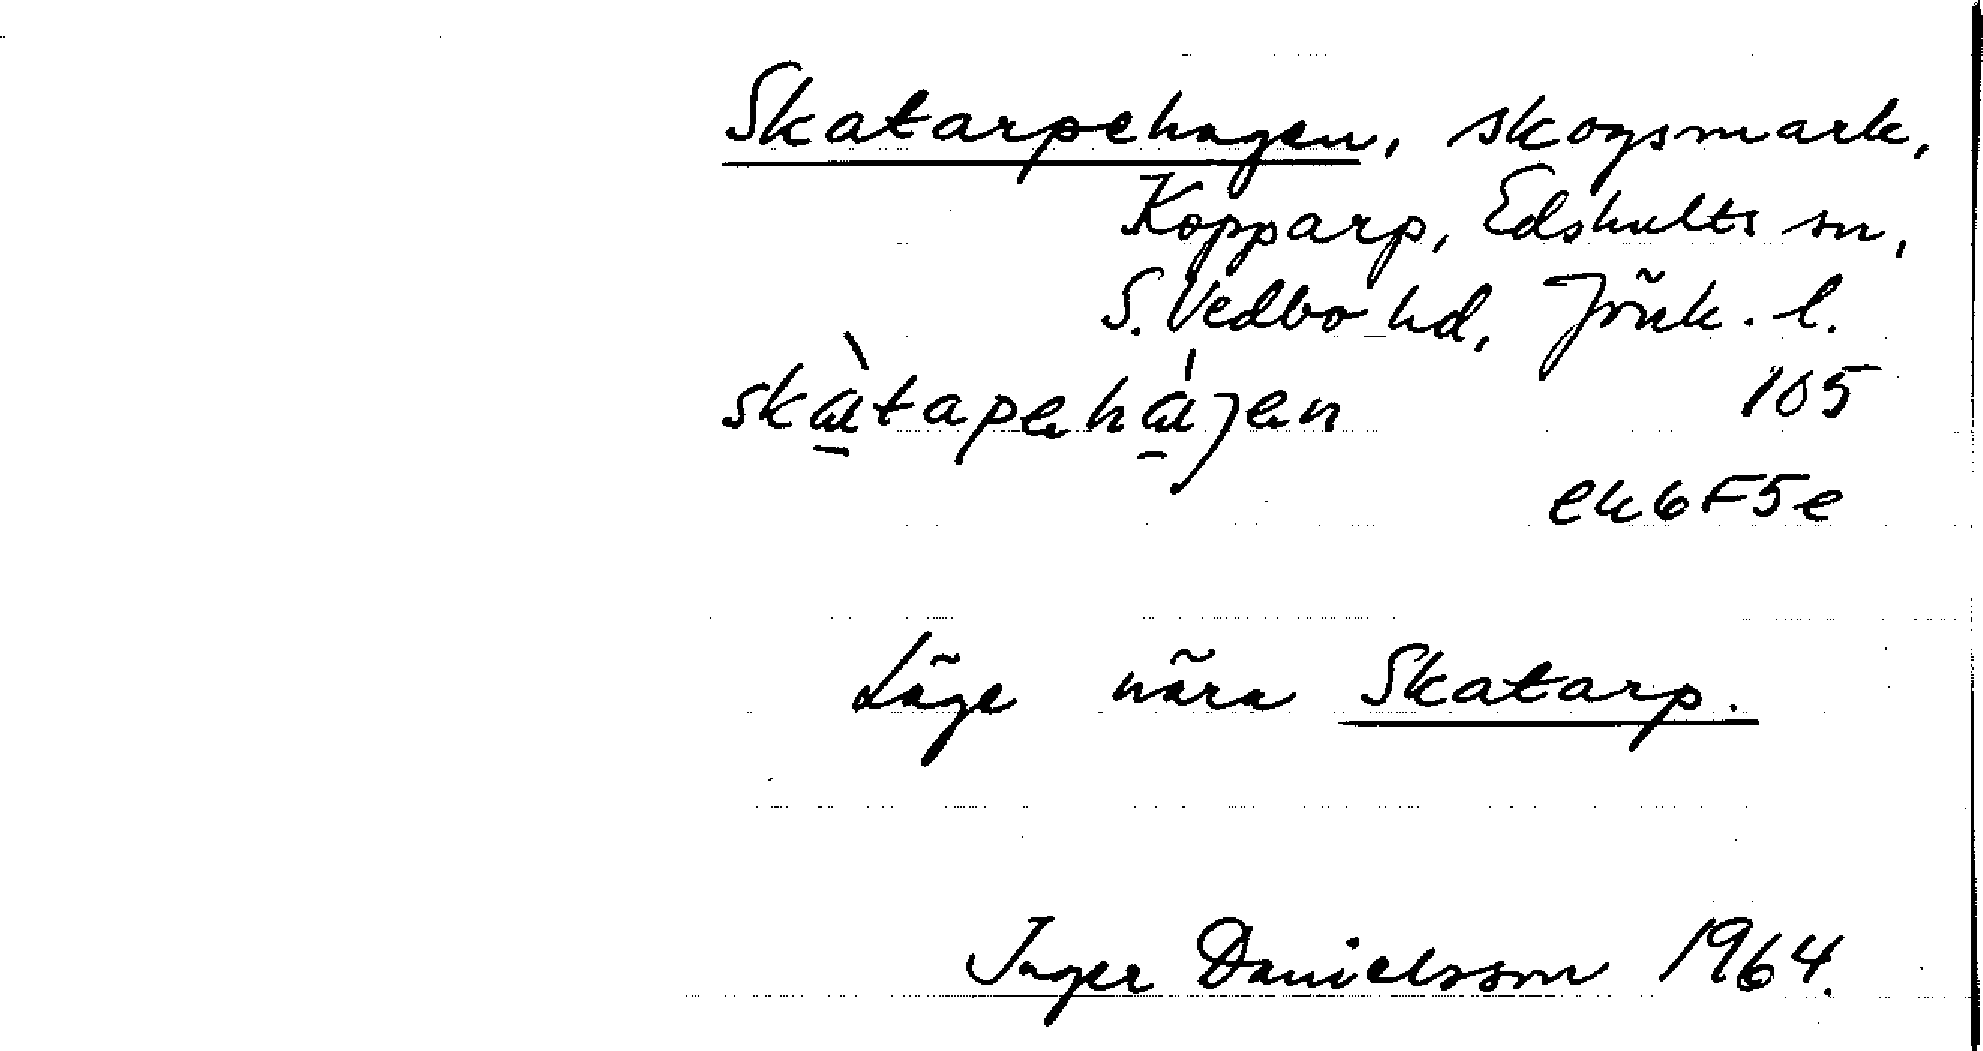 Skatarpehagen, skogsmark,
Kopparp, Edshults sn,
S. Vedbo hd, Jönk. l.
skàtapehájen 105
ek6F5e
Läge nära Skatarp.
Inger Danielsson 1964.